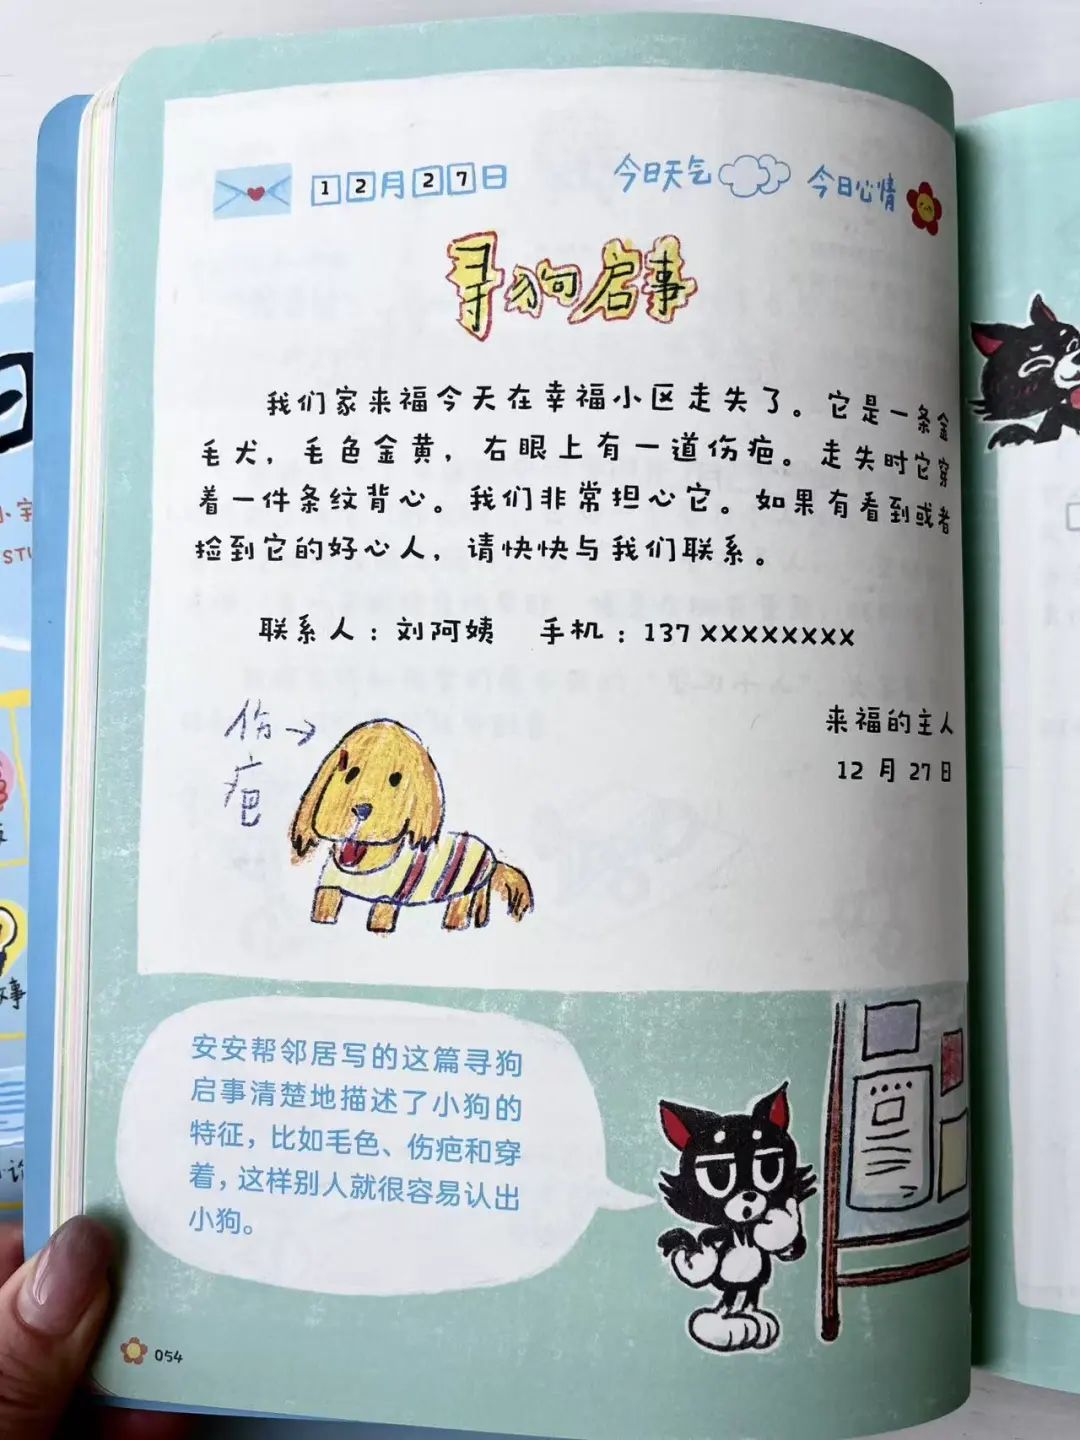 12月27日 今日天气 今日心情
寻狗启事
我们家来福今天在幸福小区走失了。它是一条金
毛犬，毛色金黄，右眼上有一道伤疤。走失时它穿
着一件条纹背心。我们非常担心它。如果有看到或者
捡到它的好心人，请快快与我们联系。
联系人：刘阿姨 手机：137××××××××
来福的主人
12月27日
伤
疤
安安帮邻居写的这篇寻狗
启事清楚地描述了小狗的
特征，比如毛色、伤疤和穿
着，这样别人就很容易认出
小狗。
054